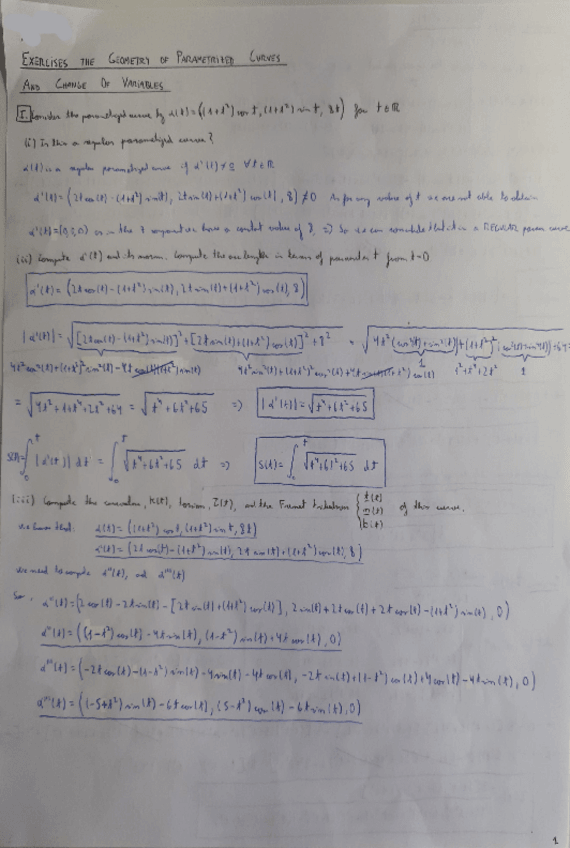 EXERCISES THE GEOMETRY OF PARAMETRIZED CURVES
AND CHANGE OF VARIABLES
I. Consider the parametrized curve by α(t) = ((1+t²) cos t, (1+t²) sin t, 8t) for t ∈ ℝ
(i) Is this a regular parametrized curve?
α(t) is a regular parametrized curve if α'(t) ≠ 0 ∀t ∈ ℝ
α'(t) = (2t cos(t) - (1+t²) sin(t), 2t sin(t) + (1+t²) cos(t), 8) ≠ 0 As for any value of t we are not able to obtain
α'(t) = (0,0,0) as in the 3 component have a constant value of 8. ⇒ So we can conclude that it is a REGULAR param curve
(ii) Compute α'(t) and its norm. Compute the arc length in terms of parameter t from t=0
α'(t) = (2t cos(t) - (1+t²) sin(t), 2t sin(t) + (1+t²) cos(t), 8)
|α'(t)| = √[2t cos(t) - (1+t²) sin(t)]² + [2t sin(t) + (1+t²) cos(t)]² + 8² = √4t² (cos²(t) + sin²(t)) + (1+t²)² (cos²(t) + sin²(t)) + 64 =
4t² cos²(t) + (1+t²)² sin²(t) - 4t cos(t)(1+t²) sin(t) 4t² sin²(t) + (1+t²)² cos²(t) + 4t sin(t)(1+t²) cos(t) 1 1²+t⁴+2t² 1
= √4t² + 1 + t⁴ + 2t² + 64 = √t⁴ + 6t² + 65 ⇒ |α'(t)| = √t⁴ + 6t² + 65
S(t) = ∫₀ᵗ |α'(t)| dt = ∫₀ᵗ √t⁴ + 6t² + 65 dt ⇒ S(t) = ∫₀ᵗ √t⁴ + 6t² + 65 dt
(iii) Compute the curvature, k(t), torsion, τ(t), and the Frenet trihedron { t(t) n(t) b(t) of this curve.
We know that: α(t) = ((1+t²) cos t, (1+t²) sin t, 8t)
α'(t) = (2t cos(t) - (1+t²) sin(t), 2t sin(t) + (1+t²) cos(t), 8)
We need to compute α''(t), and α'''(t)
So, α''(t) = (2 cos(t) - 2t sin(t) - [2t sin(t) + (1+t²) cos(t)], 2 sin(t) + 2t cos(t) + 2t cos(t) - (1+t²) sin(t), 0)
α''(t) = ((1-t²) cos(t) - 4t sin(t), (1-t²) sin(t) + 4t cos(t), 0)
α'''(t) = (-2t cos(t) - (1-t²) sin(t) - 4 sin(t) - 4t cos(t), -2t sin(t) + (1-t²) cos(t) + 4 cos(t) - 4t sin(t), 0)
α'''(t) = ((-5+t²) sin(t) - 6t cos(t), (5-t²) cos(t) - 6t sin(t), 0)
1